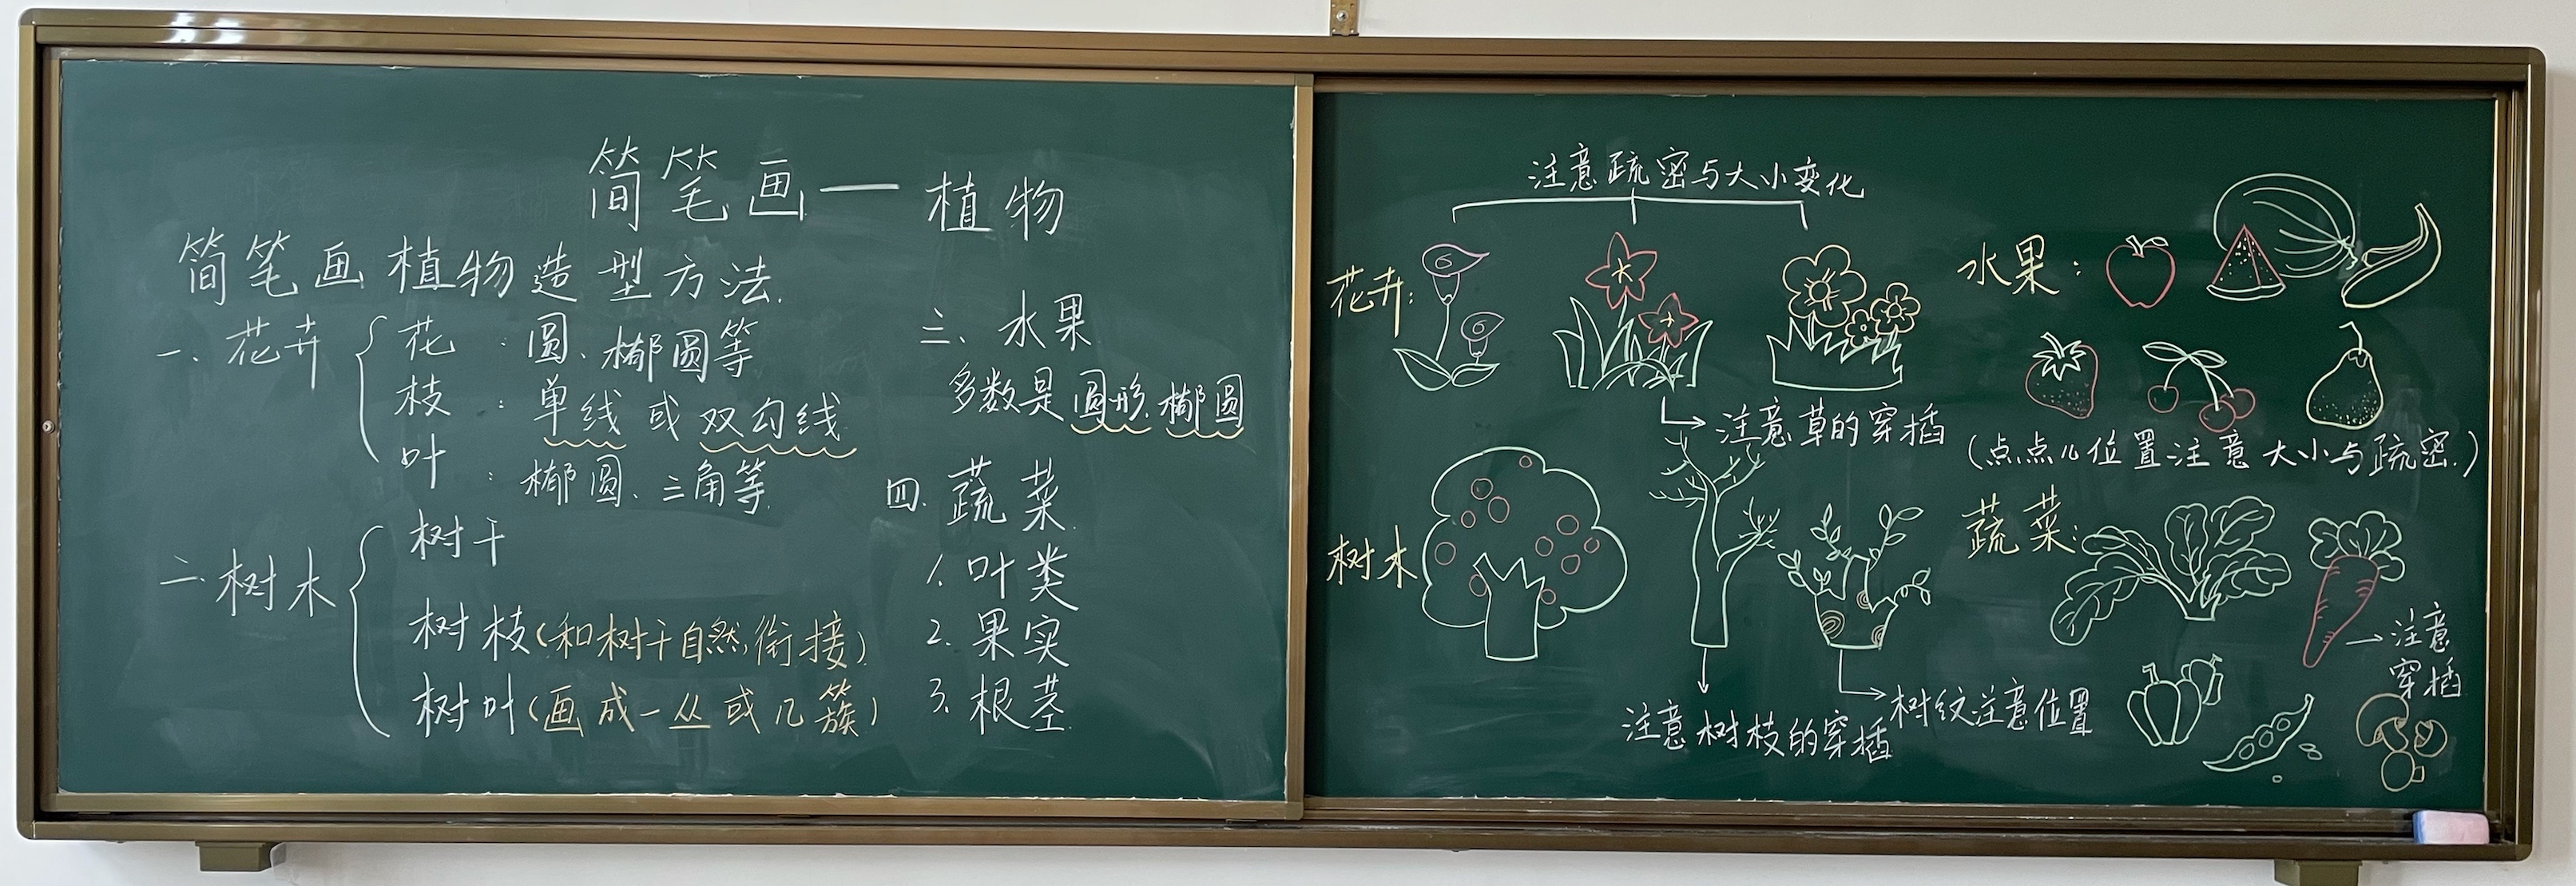 简笔画—植物
简笔画植物造型方法.
一、花卉
花：圆、椭圆等
枝：单线或双勾线
叶：椭圆、三角等.
二、树木
树干
树枝(和树干自然衔接)
树叶(画成一丛或几簇)
三、水果
多数是圆形.椭圆
四.蔬菜.
1.叶类
2.果实
3.根茎.
注意疏密与大小变化
花卉:
注意草的穿插
树木
注意树枝的穿插
树纹注意位置
水果:
(点点儿位置注意大小与疏密.)
蔬菜:
注意
穿插